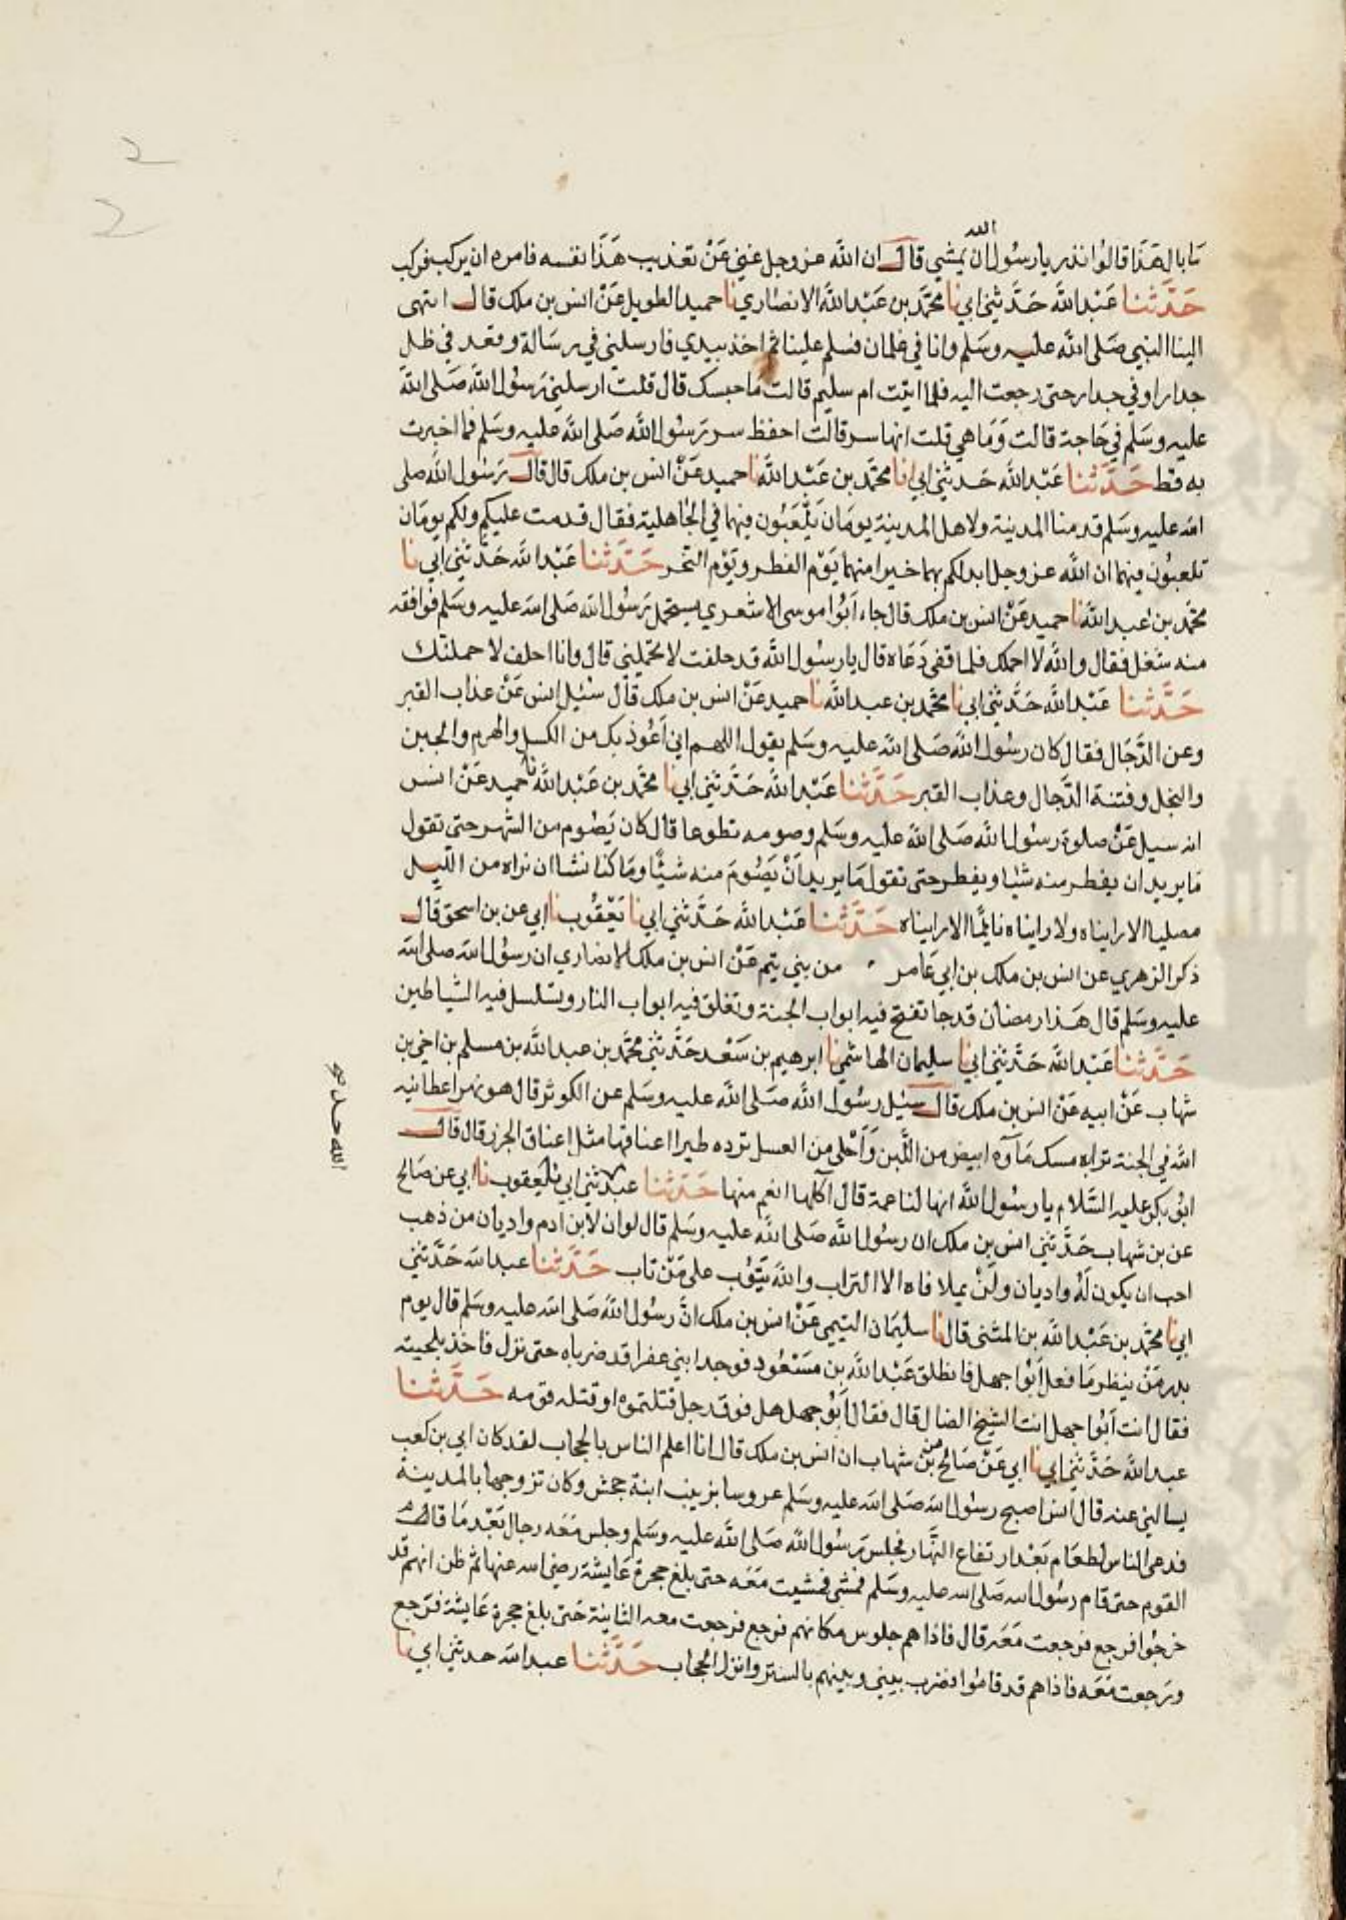 2
2
الله
ما بال هَذَا قالوُا نذر يا رسُول ان يمشي قال ان الله عز وجل غني عَنْ تعذيب هَذَا نفسه فامره ان يركب فركب
حَدَّثنا عَبْد الله حَدَّثني ابي نا محمَّد بن عَبْد الله الانصاري نا حميد الطويل عَنْ انس بن ملك قال انتهى
الينا النبي صَلى الله عليه وسَلم وانا في غلمان فسلم علينا ثم اخذ بيدي فارسلني في رسَالة وقعد في ظل
جدار او في جدار حتى رجعت اليه فلما اتيت ام سليم قالت مَا حبسك قال قلت ارسلني رَسوُل الله صَلى الله
عليه وسَلم في حَاجة قالت وَمَا هي قلت انها سر قالت احفظ سر رَسوُل الله صَلى الله عليه وسَلم فما اخبرت
به قط حَدَّثنا عَبْد الله حَدثني ابي انا محمَّد بن عَبْد الله نا حميد عَنْ انس بن ملك قال قال رَسوُل الله صلى
الله عليه وسَلم قدمنا المدينة ولاهل المدينة يومَان يلْعَبُون فيهما في الجَاهلية فقال قدمت عليكم ولكم يومَان
تلعبوُن فيهما ان الله عز وجل ابدلكم بهما خيرا منهما يَوْم الفطر ويَوْم النحر حَدَّثنا عَبْد الله حَدَّثني ابي نا
محمَّد بن عبد الله نا حميد عَنْ انس بن ملك قال جاء ابَوُا موسى الاشعري يستحمل رَسوُل الله صَلى الله عليه وسَلم فوافقه
منه شغل فقال والله لا احملك فلما قفى دَعَاه قال يا رسوُل الله قد حلفت لا تحملني قال وانا احلف لا حملتك
حَدَّثنا عَبْد الله حَدَّثني ابي نا محمَّد بن عبد الله نا حميد عَنْ انس بن ملك قال سئل انس عَنْ عذاب القبر
وعن الدَّجَال فقال كان رسُول الله صَلى الله عليه وسَلم يقول اللهم اني اعَوُذ بك من الكسل والهرم والجبن
والبخل وفتنة الدَّجال وعذاب القبر حَدَّثنا عَبْد الله حَدَّثني ابي نا محمَّد بن عَبْد الله نا حميد عَنْ انس
انه سيل عَنْ صلوة رسوُل الله صَلى الله عليه وسَلم وصومه تطوعا قال كان يَصُوم من الشهر حتى تقول
مَا يريد ان يفطر منه شيا ويفطر حتى نقول مَا يريد انْ يَصُومَ منه شيئًا ومَا كنا نشا ان نراه من الليل
مصليا الا رايناه ولا رايناه نايمًا الا رايناه حَدَّثنا عَبْد الله حَدَّثني ابي نا يَعْقوُب نا ابي عن بن اسحق قال
ذكر الزهري عن انس بن ملك بن ابي عَامر من بني يتم عَنْ انس بن ملك الانصاري ان رسوُل الله صلى الله
عليه وسَلم قال هَذا رمضان قد جا تفتح فيه ابواب الجنة وتغلق فيه ابواب النار وتسلسل فيه الشياطين
حَدَّثنا عَبْد الله حَدَّثني ابي نا سليمان الهاشمي نا ابرهيم بن سَعْد حَدَّثني محمَّد بن عبد الله بن مسلم بن اخي بن
شهاب عَنْ ابيه عَنْ انس بن ملك قال سيل رسُول الله صَلى الله عليه وسَلم عن الكوثر قال هو نهر اعطانيه
الله في الجنة ترابه مسك مَآوه ابيض من اللَّبن وَاَحْلى من العسل ترده طير اعناقها مثل اعناق الجزر قال قال
ابوُ بكر عليه السَّلام يا رسوُل الله انها لناعمة قال آكلها انعم منها حَدَّثنا عبد ثني ابي نا يعقوب نا ابي عن صَالح
الله حد صح
عن بن شهاب حَدَّثني انس بن ملك ان رسوُل الله صَلى الله عليه وسَلم قال لو ان لابن ادم واديان من ذهب
احب ان يكون لَهُ واديان ولنْ يملا فاه الا التراب والله يَتوُب على مَنْ تاب حَدَّثنا عبد الله حَدَّثني
ابي نا محمَّد بن عَبْد الله بن المثنى قال نا سليمَان التيمي عَنْ انس بن ملك انَّ رسوُل الله صَلى الله عليه وسَلم قال يوم
بدر مَنْ ينظر مَا فعل ابَوُا جهل فانطلق عَبْد الله بن مسَعْود فوجد ابني عفرا قد ضرباه حتى نزل فاخذ بلحيته
فقال انت ابَوُا جهل انت الشيخ الضال قال فقال ابَوُ جهل هل فوق رجل قتلتموه او قتله قومه حَدَّثنا
عبد الله حَدَّثني ابي نا ابي عَنْ صَالح عن بن شهاب ان انس بن ملك قال انا اعلم الناس بالحجاب لقد كان ابي بن كعب
يسالني عنه قال انس اصبح رسوُل الله صَلى الله عليه وسَلم عروسا بزينب ابنة جحش وكان تزوجها بالمدينة
فدعى الناس لطعَام بَعْد ارتفاع النَّهار فجلس رَسُول الله صَلى الله عليه وسَلم وجلس مَعَه رجال بَعْد مَا قام
القوم حتى قام رسوُل الله صَلى الله عليه وسَلم فمشى فمشيت مَعَه حتى بلغ حجرة عَايشة رضي الله عنها ثم ظن انهم قد
خرجوُا فرجع فرجعت مَعَه قال فاذا هم جلوس مكانهم فرجع فرجعت معه الثانية حَتى بلغ حجرة عَايشة فرَجع
ورَجعت مَعَه فاذا هم قد قاموُا فضرب بيني وبينهم بالستر وانزل الحجاب حَدَّثنا عبد الله حدثني ابي نا